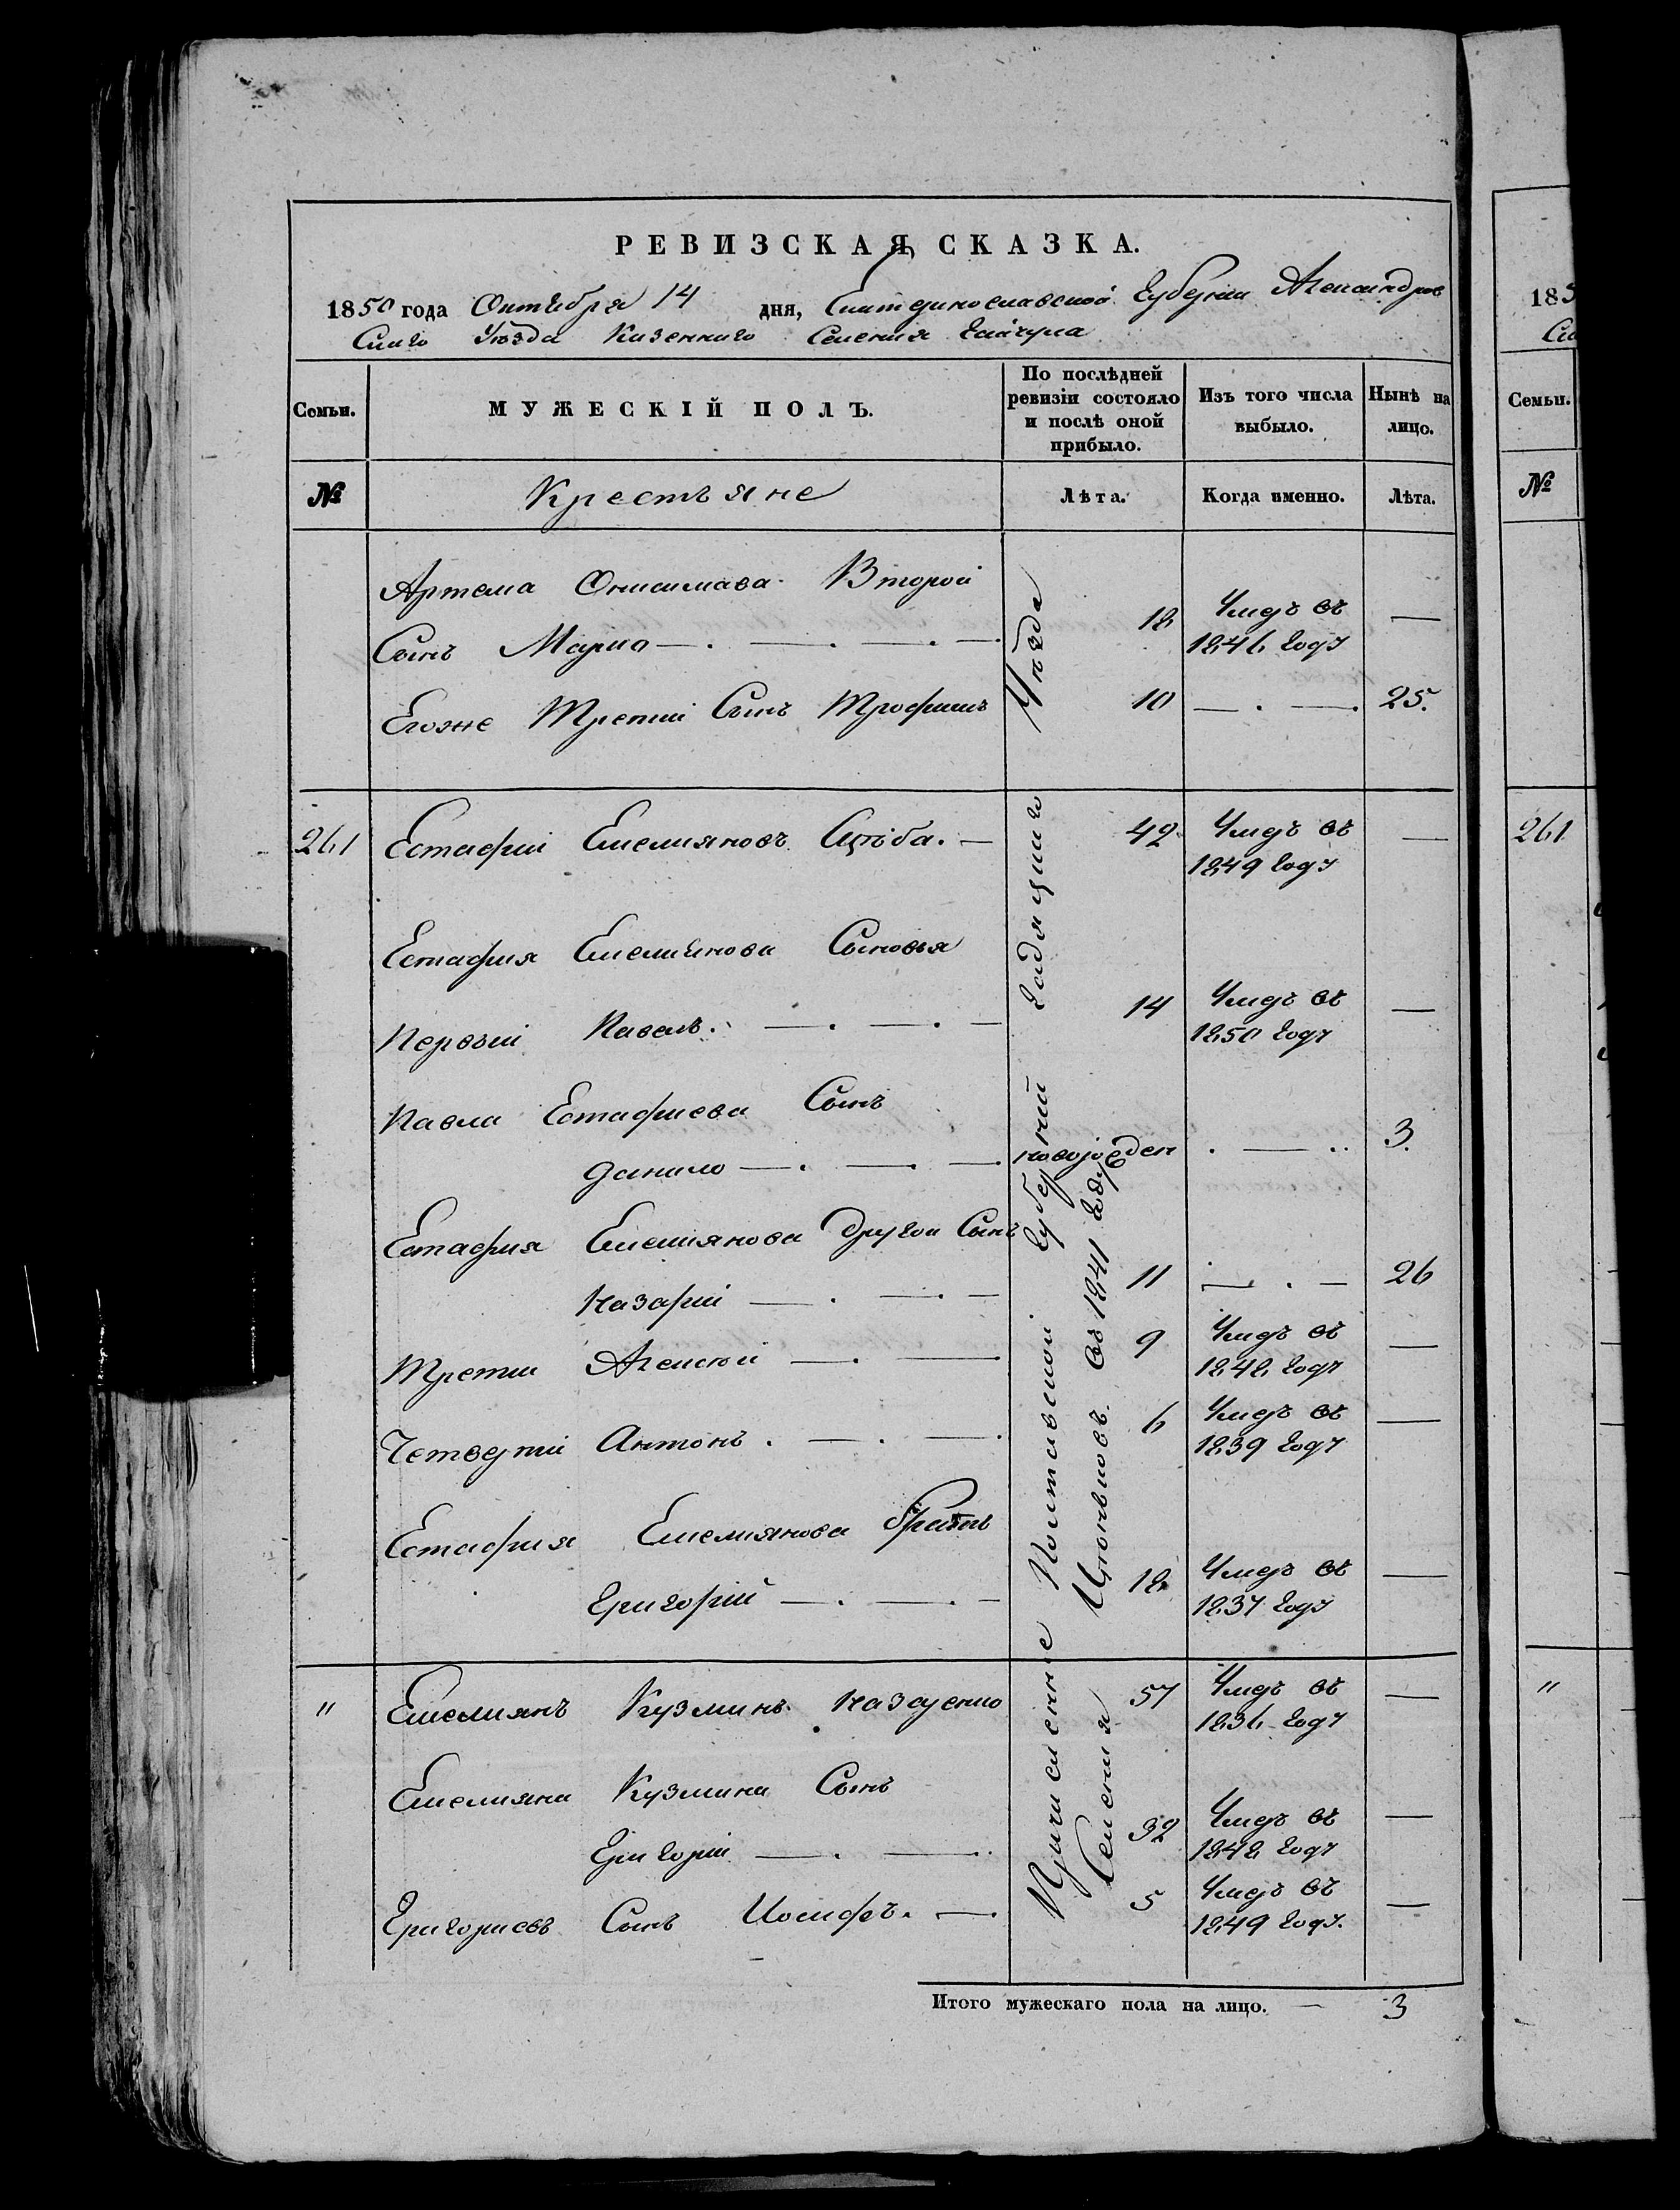 РЕВИЗСКАЯ СКАЗКА.
1850 года Октября 14 дня, Екатеринославской Губернии Александров
Скаго Уѣзда Казеннаго Селения Гайчула
Семьи.
МУЖЕСКІЙ ПОЛЪ.
По послѣдней ревизіи состояло и послѣ оной прибыло.
Изъ того числа выбыло.
Нынѣ на лицо.
№
Крестьяне
Лѣта.
Когда именно.
Лѣта.
Артема Онисимова Второй
Сынъ Марко 12 Умеръ въ 1846 году —
Егоже Третий Сынъ Трофимъ 10 — 25.
261 Естафий Емелияновъ 42 Умеръ въ —
1849 году
Естафия Емелиянова Сыновья
Первый Павелъ. 14 Умеръ въ —
1850 году
Павла Естафиева Сынъ
Данило — новорожден — 3.
Естафия Емелиянова Другои Сынъ
Назарий 11 — 26
Третий Алексей 9 Умеръ въ —
1842 году
Четвертий Антонъ. 6 Умеръ въ —
1839 году
Естафия Емелиянова братъ
Григорий 12 Умеръ въ —
1837 году
" Емелиянъ Кузминъ Назаренко 57 Умеръ въ —
1836 году
Емелияна Кузмина Сынъ
Григорий 32 Умеръ въ —
1842 году
Григориевъ Сынъ Иосифъ. 5 Умеръ въ —
1849 году.
Причисленные Полтавской Губерний Гадяцкого Уѣзда
Селения въ 1841 году
Итого мужескаго пола на лицо. — 3
185
Семьи.
№
261
"